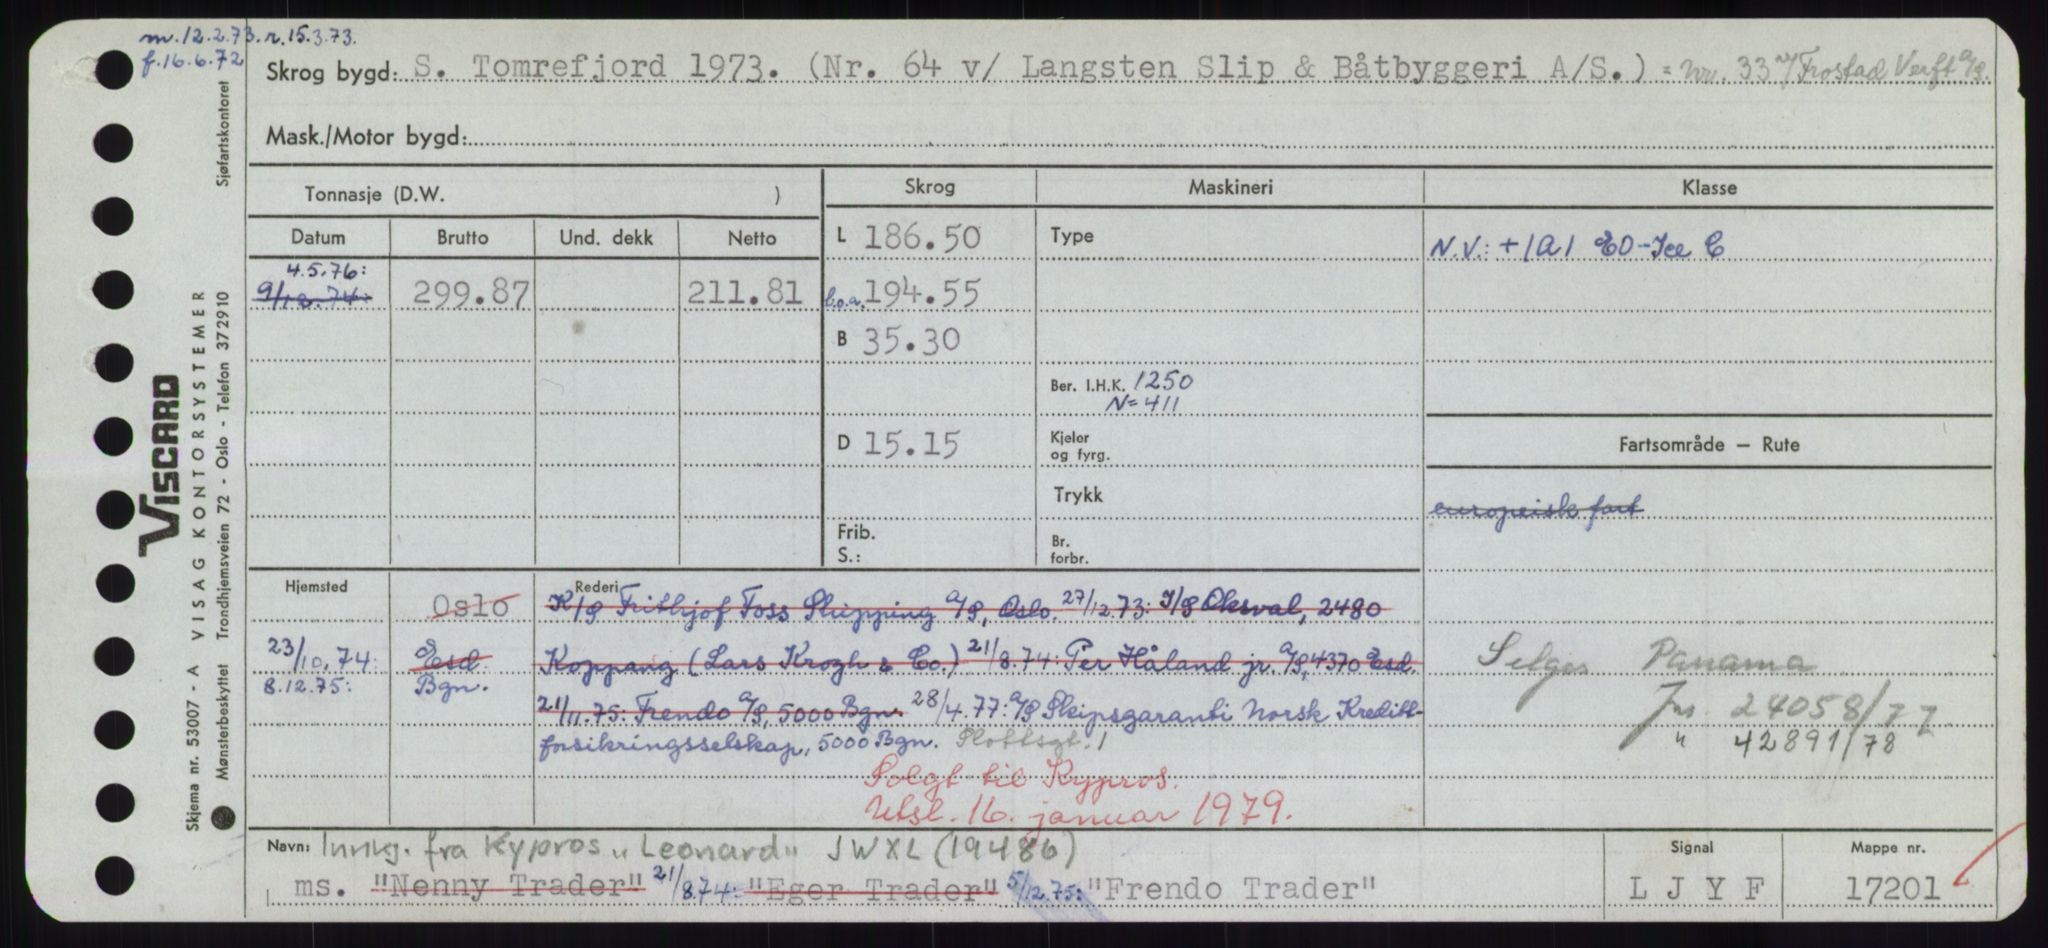 m. 12.2.73. r. 15.3.73.
f. 16.6.72
Skrog bygd: S. Tomrefjord 1973. (Nr. 64 v/ Langsten Slip & Båtbyggeri A/S.) = Nr. 33 v/ Frostad Verft A/S.
Mask./Motor bygd:
Tonnasje (D.W. )
Skrog Maskineri Klasse
Datum Brutto Und. dekk Netto
L 186.50 Type
N.V.: +1A1 EO-Ice C
4.5.76:
9/12.74: 299.87 211.81 l.o.a. 194.55
B 35.30
Ber. I.H.K. 1250
N=411
D 15.15 Kjeler og fyrg.
Fartsområde — Rute
Trykk
europeisk fart
Frib.
S.:
Br. forbr.
Hjemsted Rederi
Oslo K/S Frithjof Foss Shipping A/S, Oslo. 27/12.73: I/S Oksval, 2480
23/10.74: Esd. Koppang (Lars Krogh & Co.) 21/8.74: Per Håland jr. A/S, 4370 Esd.
8.12.75: Bgn.
21/11.75: Frendo A/S, 5000 Bgn. 28/4.77: A/S Skipsgaranti Norsk Kreditt-
forsikringsselskap, 5000 Bgn. Slottsgt. 1
Selges Panama
Jnr. 24058/77
" 42891/78
Solgt til Kypros.
Utsl. 16. januar 1979.
Navn: Innkj. fra Kypros "Leonard" JWXL (19486)
ms. "Nenny Trader" 21/8.74: "Eger Trader" 5/12.75: "Frendo Trader"
Signal
L J Y F
Mappe nr.
17201
Sjøfartskontoret
VISCARD
VISAG KONTORSYSTEMER
Trondhjemsveien 72 - Oslo - Telefon 372910
Skjema nr. 53007 - A
Mønsterbeskyttet